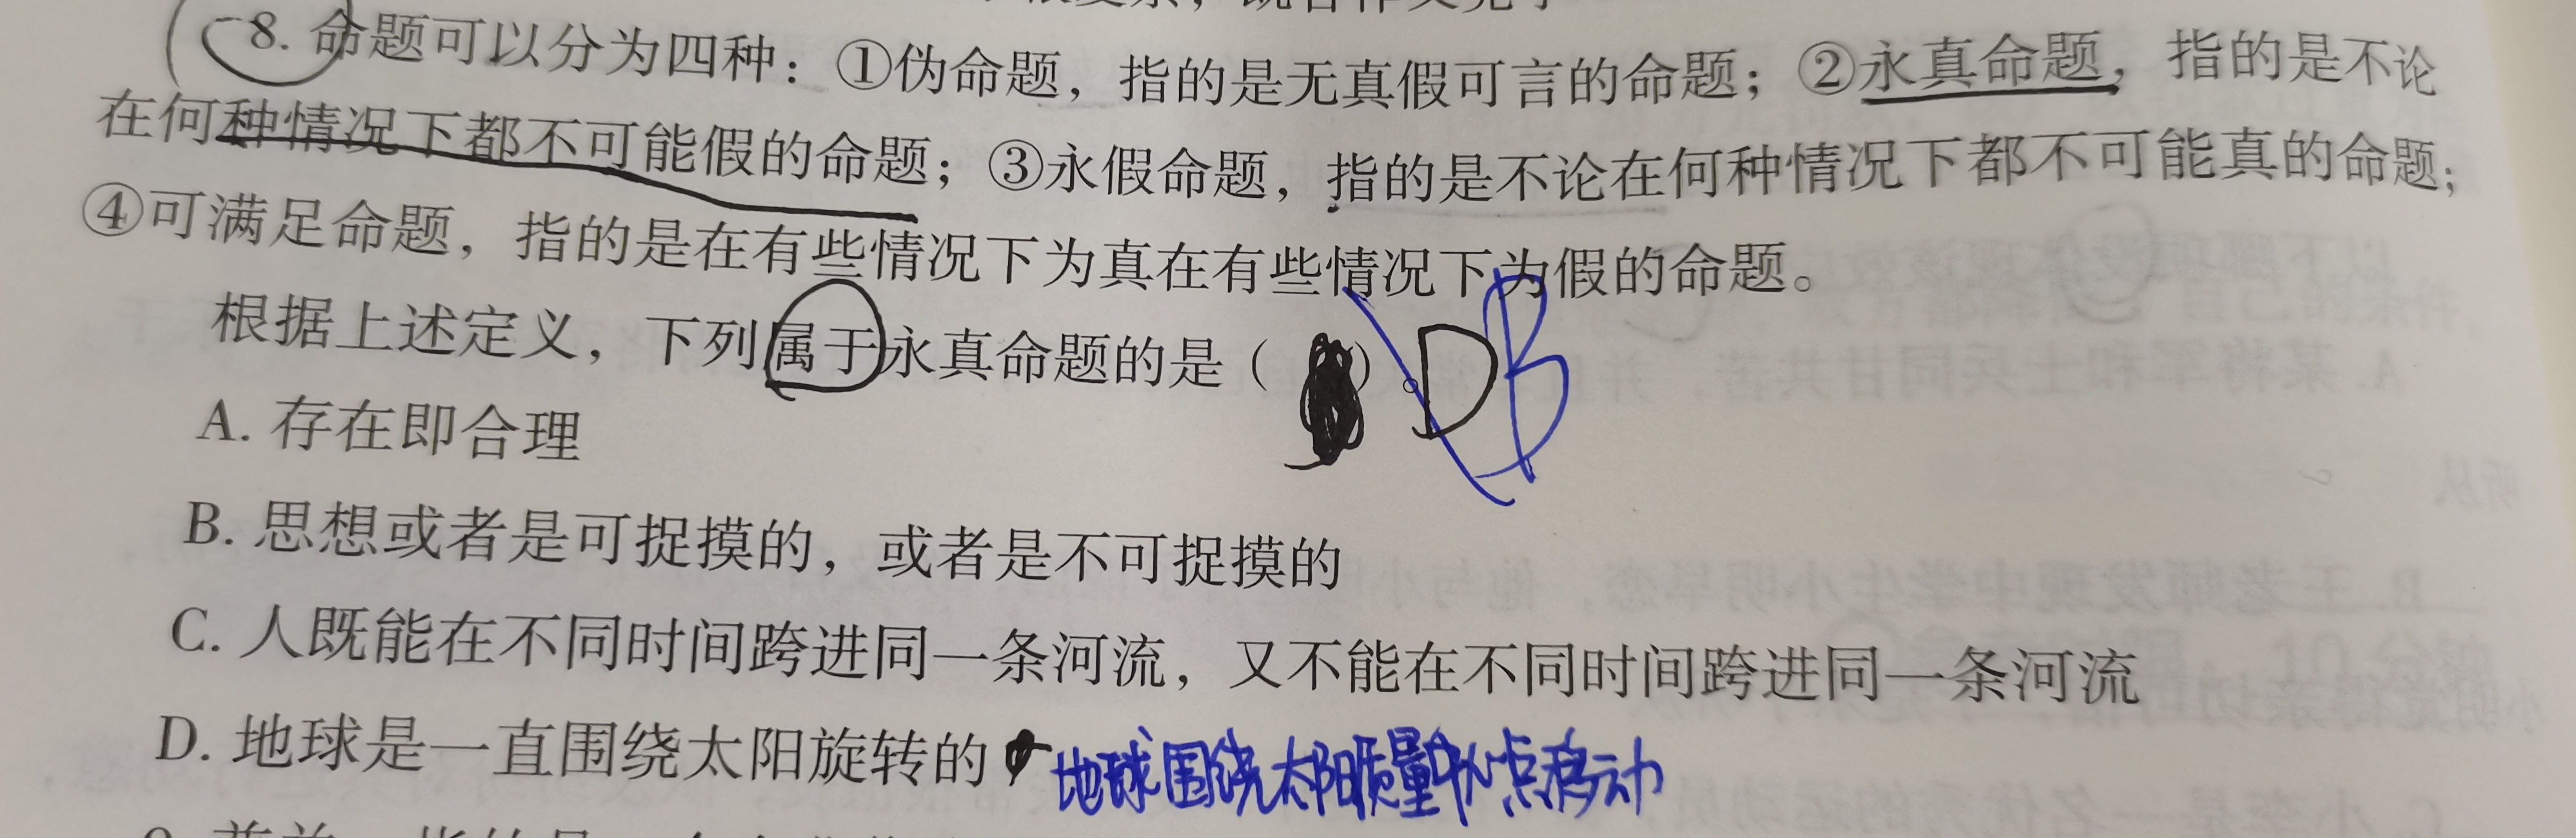 8. 命题可以分为四种：①伪命题，指的是无真假可言的命题；②永真命题，指的是不论
在何种情况下都不可能假的命题；③永假命题，指的是不论在何种情况下都不可能真的命题；
④可满足命题，指的是在有些情况下为真在有些情况下为假的命题。
根据上述定义，下列属于永真命题的是（ ）。D B
A. 存在即合理
B. 思想或者是可捉摸的，或者是不可捉摸的
C. 人既能在不同时间跨进同一条河流，又不能在不同时间跨进同一条河流
D. 地球是一直围绕太阳旋转的 地球围绕太阳质量中心点移动